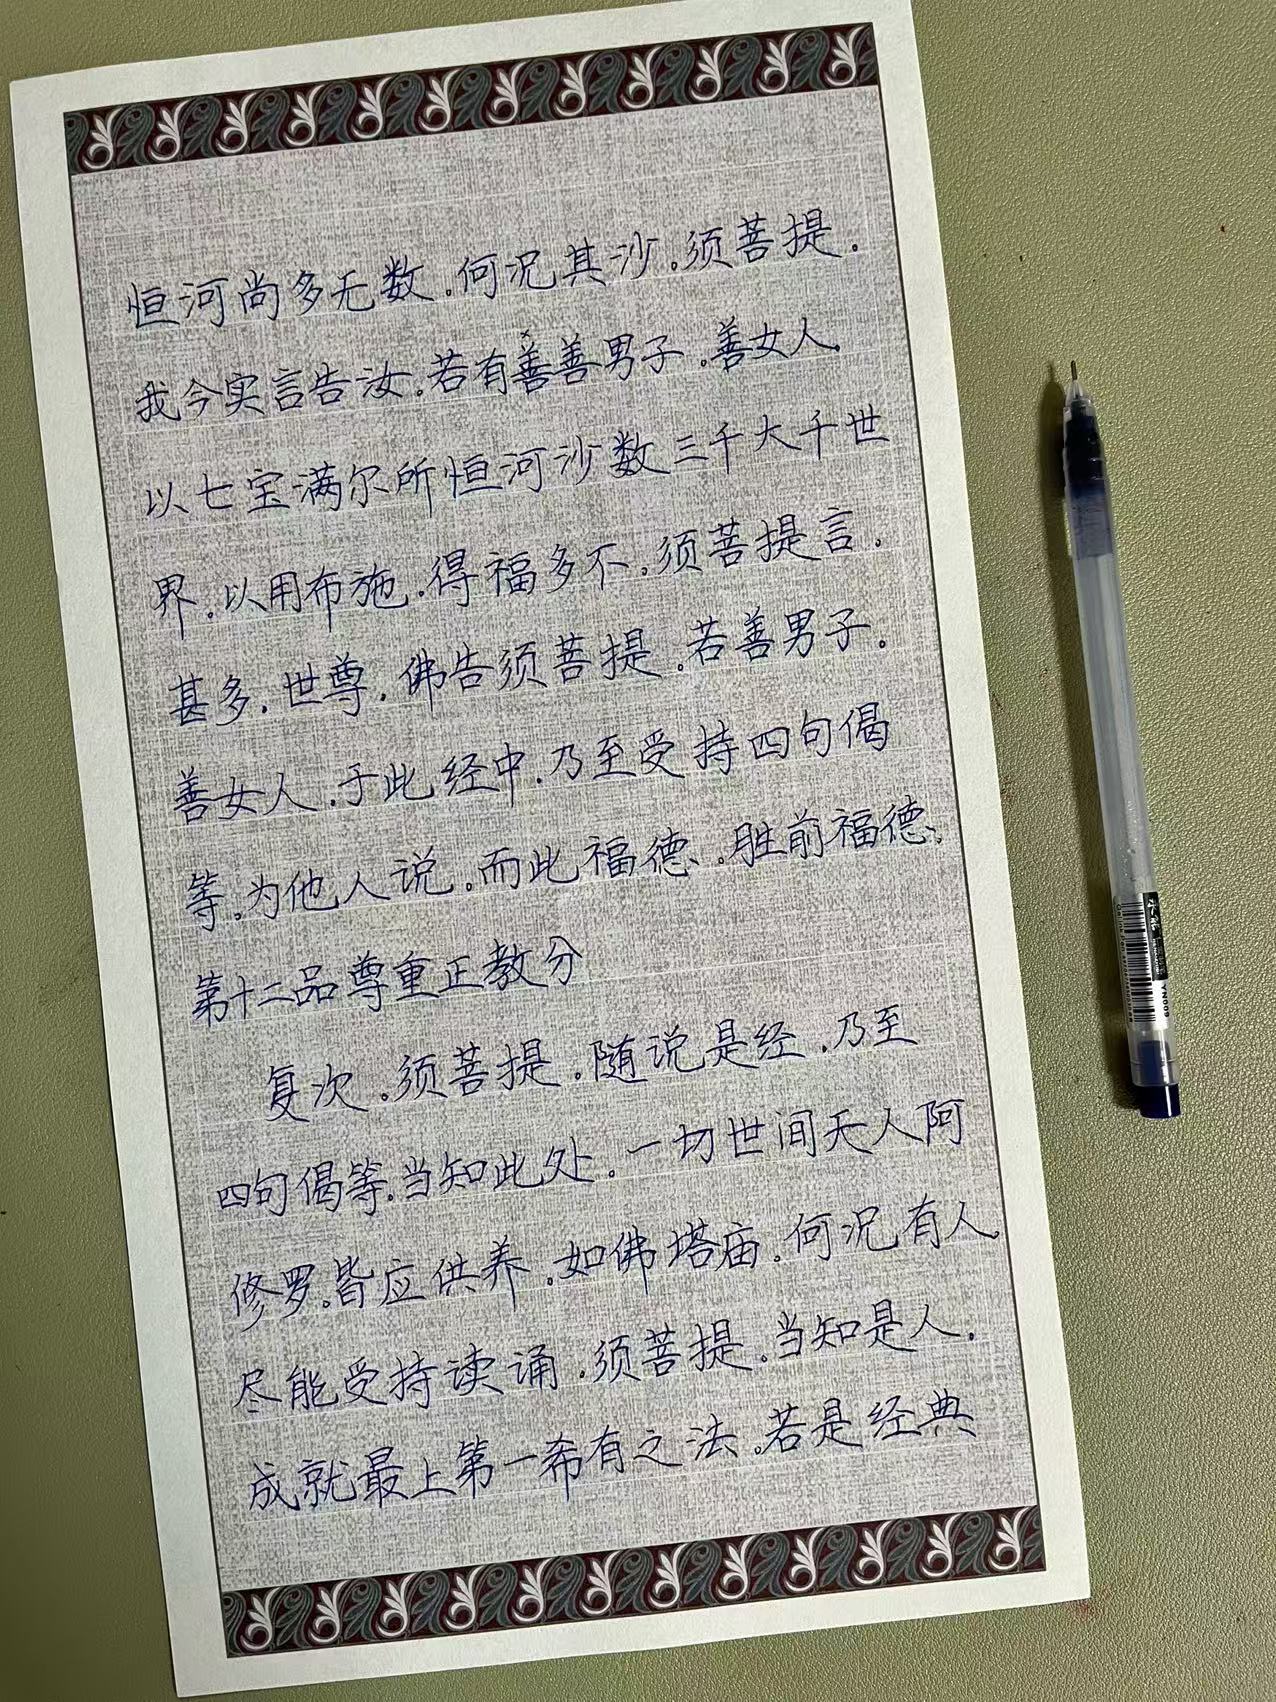 恒河尚多无数。何况其沙。须菩提。
我今实言告汝。若有善善男子。善女人。
以七宝满尔所恒河沙数三千大千世
界。以用布施。得福多不。须菩提言。
甚多。世尊。佛告须菩提。若善男子。
善女人。于此经中。乃至受持四句偈
等。为他人说。而此福德。胜前福德。
第十二品尊重正教分
复次。须菩提。随说是经。乃至
四句偈等。当知此处。一切世间天人阿
修罗。皆应供养。如佛塔庙。何况有人。
尽能受持读诵。须菩提。当知是人。
成就最上第一希有之法。若是经典
YN009